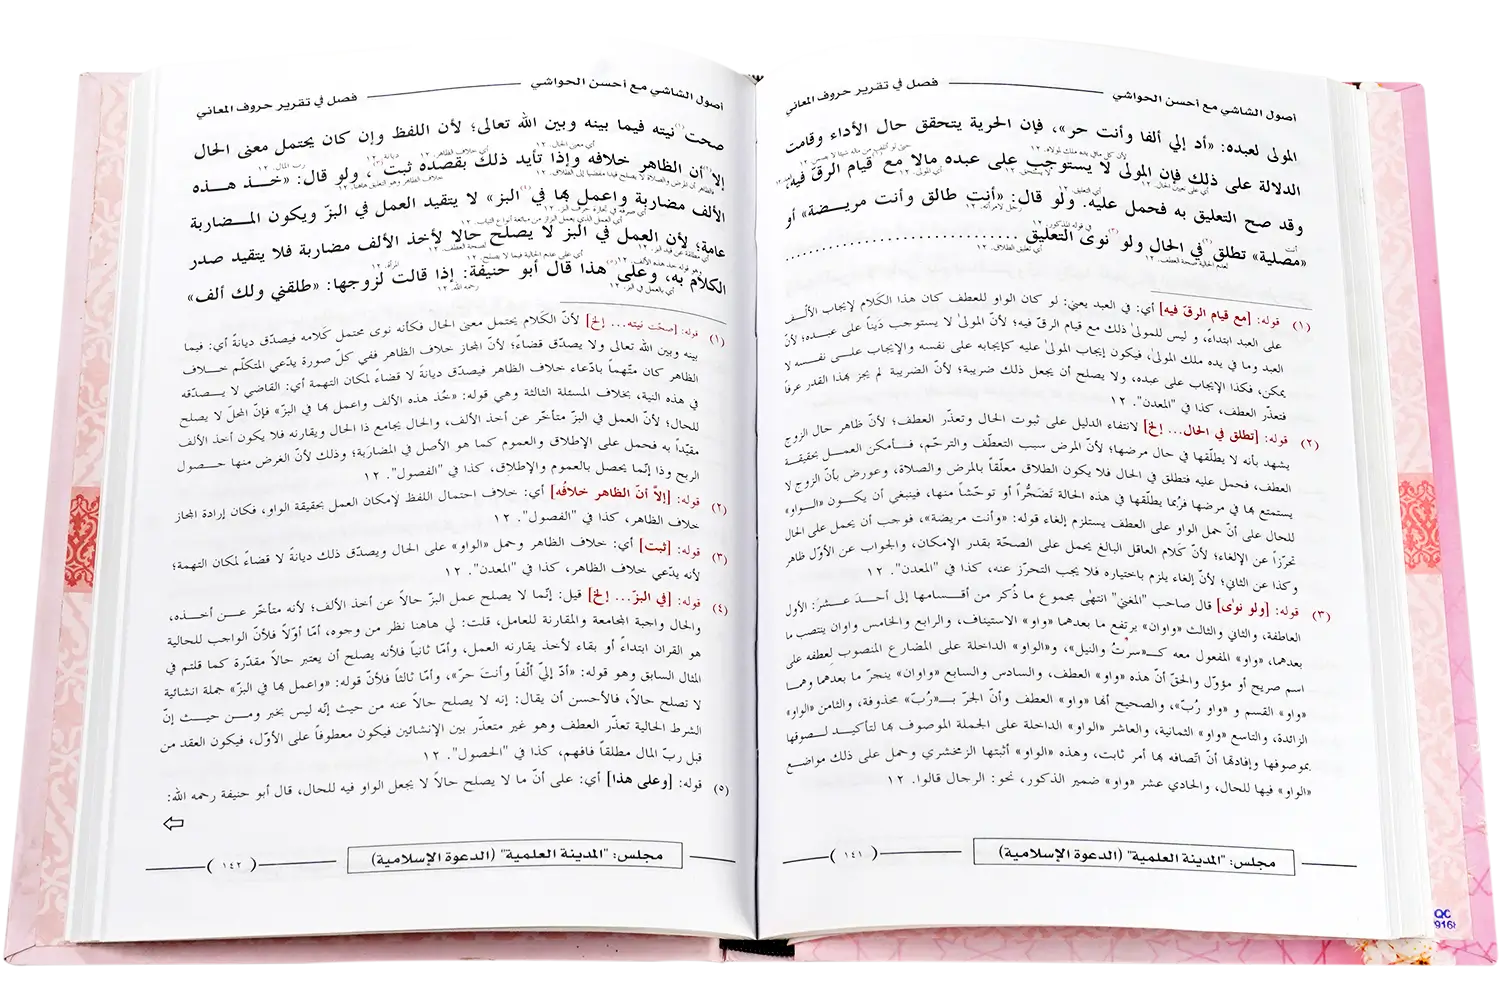 أصول الشاشي مع أحسن الحواشي
فصل في تقرير حروف المعاني
المولى لعبده: «أد إلي ألفا وأنت حر»، فإن الحرية يتحقق حال الأداء وقامت
الدلالة على ذلك فإن المولى لا يستوجب على عبده مالا مع قيام الرق فيه،
وقد صح التعليق به فحمل عليه. ولو قال: «أنت طالق وأنت مريضة» أو
«مصلية» تطلق في الحال ولو نوى التعليق
(١) قوله: [مع قيام الرقّ فيه] أي: في العبد يعني: لو كان الواو للعطف كان هذا الكَلام لإيجاب الألْف
على العبد ابتداءً، و ليس للمولىٰ ذلك مع قيام الرقّ فيه؛ لأنّ المولىٰ لا يستوجب دَيناً على عبده؛ لأنّ
العبد وما في يده ملك المولىٰ، فيكون إيجاب المولىٰ عليه كإيجابه على نفسه والإيجاب على نفسه لا
يمكن، فكذا الإيجاب على عبده، ولا يصلح أن يجعل ذلك ضريبة؛ لأنّ الضريبة لم يجز بهذا القدر عرفاً
فتعذّر العطف، كذا في "المعدن". ١٢
(٢) قوله: [تطلق في الحال... إلخ] لانتفاء الدليل على ثبوت الحال وتعذّر العطف؛ لأنّ ظاهر حال الزوج
يشهد بأنه لا يطلّقها في حال مرضها؛ لأنّ المرض سبب التعطّف والترحّم، فأمكن العمل بحقيقة
العطف، فحمل عليه فتطلق في الحال فلا يكون الطلاق معلّقاً بالمرض والصلاة، وعورض بأنّ الزوج لا
يستمتع بها في مرضها فرُبما يطلّقها في هذه الحالة تَضَجُّراً أو توحّشاً منها، فينبغي أن يكون «الواو»
للحال على أنّ حمل الواو على العطف يستلزم إلغاء قوله: «وأنت مريضة»، فوجب أن يحمل على الحال
تحرّزاً عن الإلغاء؛ لأنّ كَلام العاقل البالغ يحمل على الصحّة بقدر الإمكان، والجواب عن الأوّل ظاهر
وكذا عن الثاني؛ لأنّ إلغاء يلزم باختياره فلا يجب التحرّز عنه، كذا في "المعدن". ١٢
(٣) قوله: [ولو نوىٰ] قال صاحب "المغني" انتهى مجموع ما ذُكر من أقسامها إلى أحدَ عشَرَ: الأول
العاطفة، والثاني والثالث «واوان» يرتفع ما بعدهما «واو» الاستيناف، والرابع والخامس واوان ينتصب ما
بعدهما، «واو» المفعول معه كـ«سرتُ والنيل»، و«الواو» الداخلة على المضارع المنصوب لِعطفه على
اسم صريح أو مؤوّل والحقّ أنّ هذه «واو» العطف، والسادس والسابع «واوان» ينجرّ ما بعدهما وهما
«واو» القسم و «واو رُبّ»، والصحيح أنّها «واو» العطف وأنّ الجرّ بـ«رُبّ» محذوفة، والثامن «الواو»
الزائدة، والتاسع «واو» الثمانية، والعاشر «الواو» الداخلة على الجملة الموصوف بها لتأكيد لصوقها
بموصوفها وإفادتها أنّ اتّصافه بها أمر ثابت، وهذه «الواو» أثبتها الزمخشري وحمل على ذلك مواضع
«الواو» فيها للحال، والحادي عشر «واو» ضمير الذكور، نحو: الرجال قالوا. ١٢
مجلس: "المدينة العلمية" (الدعوة الإسلامية)
(١٤١)
أصول الشاشي مع أحسن الحواشي
فصل في تقرير حروف المعاني
صحت نيته فيما بينه وبين الله تعالى؛ لأن اللفظ وإن كان يحتمل معنى الحال
إلا أن الظاهر خلافه وإذا تأيد ذلك بقصده ثبت، ولو قال: «خذ هذه
الألف مضاربة واعمل بها في البز» لا يتقيد العمل في البزّ ويكون المضاربة
عامة؛ لأن العمل في البز لا يصلح حالا لأخذ الألف مضاربة فلا يتقيد صدر
الكلام به، وعلى هذا قال أبو حنيفة: إذا قالت لزوجها: «طلقني ولك ألف»
(١) قوله: [صحّت نيته... إلخ] لأنّ الكَلام يحتمل معنى الحال فكأنه نوى محتمل كَلامه فيصدّق ديانةً أي: فيما
بينه وبين الله تعالى ولا يصدّق قضاءً؛ لأنّ المجاز خلاف الظاهر ففي كلّ صورة يدّعي المتكلّم خلاف
الظاهر كان متّهماً بادّعاء خلاف الظاهر فيصدّق ديانةً لا قضاءً لمكان التهمة أي: القاضي لا يصدّقه
في هذه النية، بخلاف المسئلة الثالثة وهي قوله: «خُذ هذه الألف واعمل بها في البزّ» فإنّ المحلّ لا يصلح
للحال؛ لأنّ العمل في البزّ متأخّر عن أخذ الألف، والحال يجامع ذا الحال ويقارنه فلا يكون أخذ الألف
مقيّداً به فحمل على الإطلاق والعموم كما هو الأصل في المضاربة؛ وذلك لأنّ الغرض منها حصول
الربح وذا إنّما يحصل بالعموم والإطلاق، كذا في "الفصول". ١٢
(٢) قوله: [إلاّ أنّ الظاهر خلافُه] أي: خلاف احتمال اللفظ لإمكان العمل بحقيقة الواو، فكان إرادة المجاز
خلاف الظاهر، كذا في "الفصول". ١٢
(٣) قوله: [ثبت] أي: خلاف الظاهر وحمل «الواو» على الحال ويصدّق ذلك ديانةً لا قضاءً لمكان التهمة؛
لأنه يدّعي خلاف الظاهر، كذا في "المعدن". ١٢
(٤) قوله: [في البزّ... إلخ] قيل: إنّما لا يصلح عمل البزّ حالاً عن أخذ الألف؛ لأنه متأخّر عن أخذه،
والحال واجبة المجامعة والمقارنة للعامل، قلت: لي هاهنا نظر من وجوه، أمّا أوّلاً فلأنّ الواجب للحالية
هو القران ابتداءً أو بقاء لأخذ يقارنه العمل، وأمّا ثانياً فلأنه يصلح أن يعتبر حالاً مقدّرة كما قلتم في
المثال السابق وهو قوله: «أدّ إليّ ألْفاً وأنتَ حرّ»، وأمّا ثالثاً فلأنّ قوله: «واعمل بها في البزّ» جملة انشائية
لا تصلح حالاً، فالأحسن أن يقال: إنه لا يصلح حالاً عنه من حيث إنّه ليس بخبر ومن حيث إنّ
الشرط الحالية تعذّر العطف وهو غير متعذّر بين الإنشائين فيكون معطوفاً على الأوّل، فيكون العقد من
قبل ربّ المال مطلقاً فافهم، كذا في "الحصول". ١٢
(٥) قوله: [وعلى هذا] أي: على أنّ ما لا يصلح حالاً لا يجعل الواو فيه للحال، قال أبو حنيفة رحمه الله:
مجلس: "المدينة العلمية" (الدعوة الإسلامية)
(١٤٢)
QC